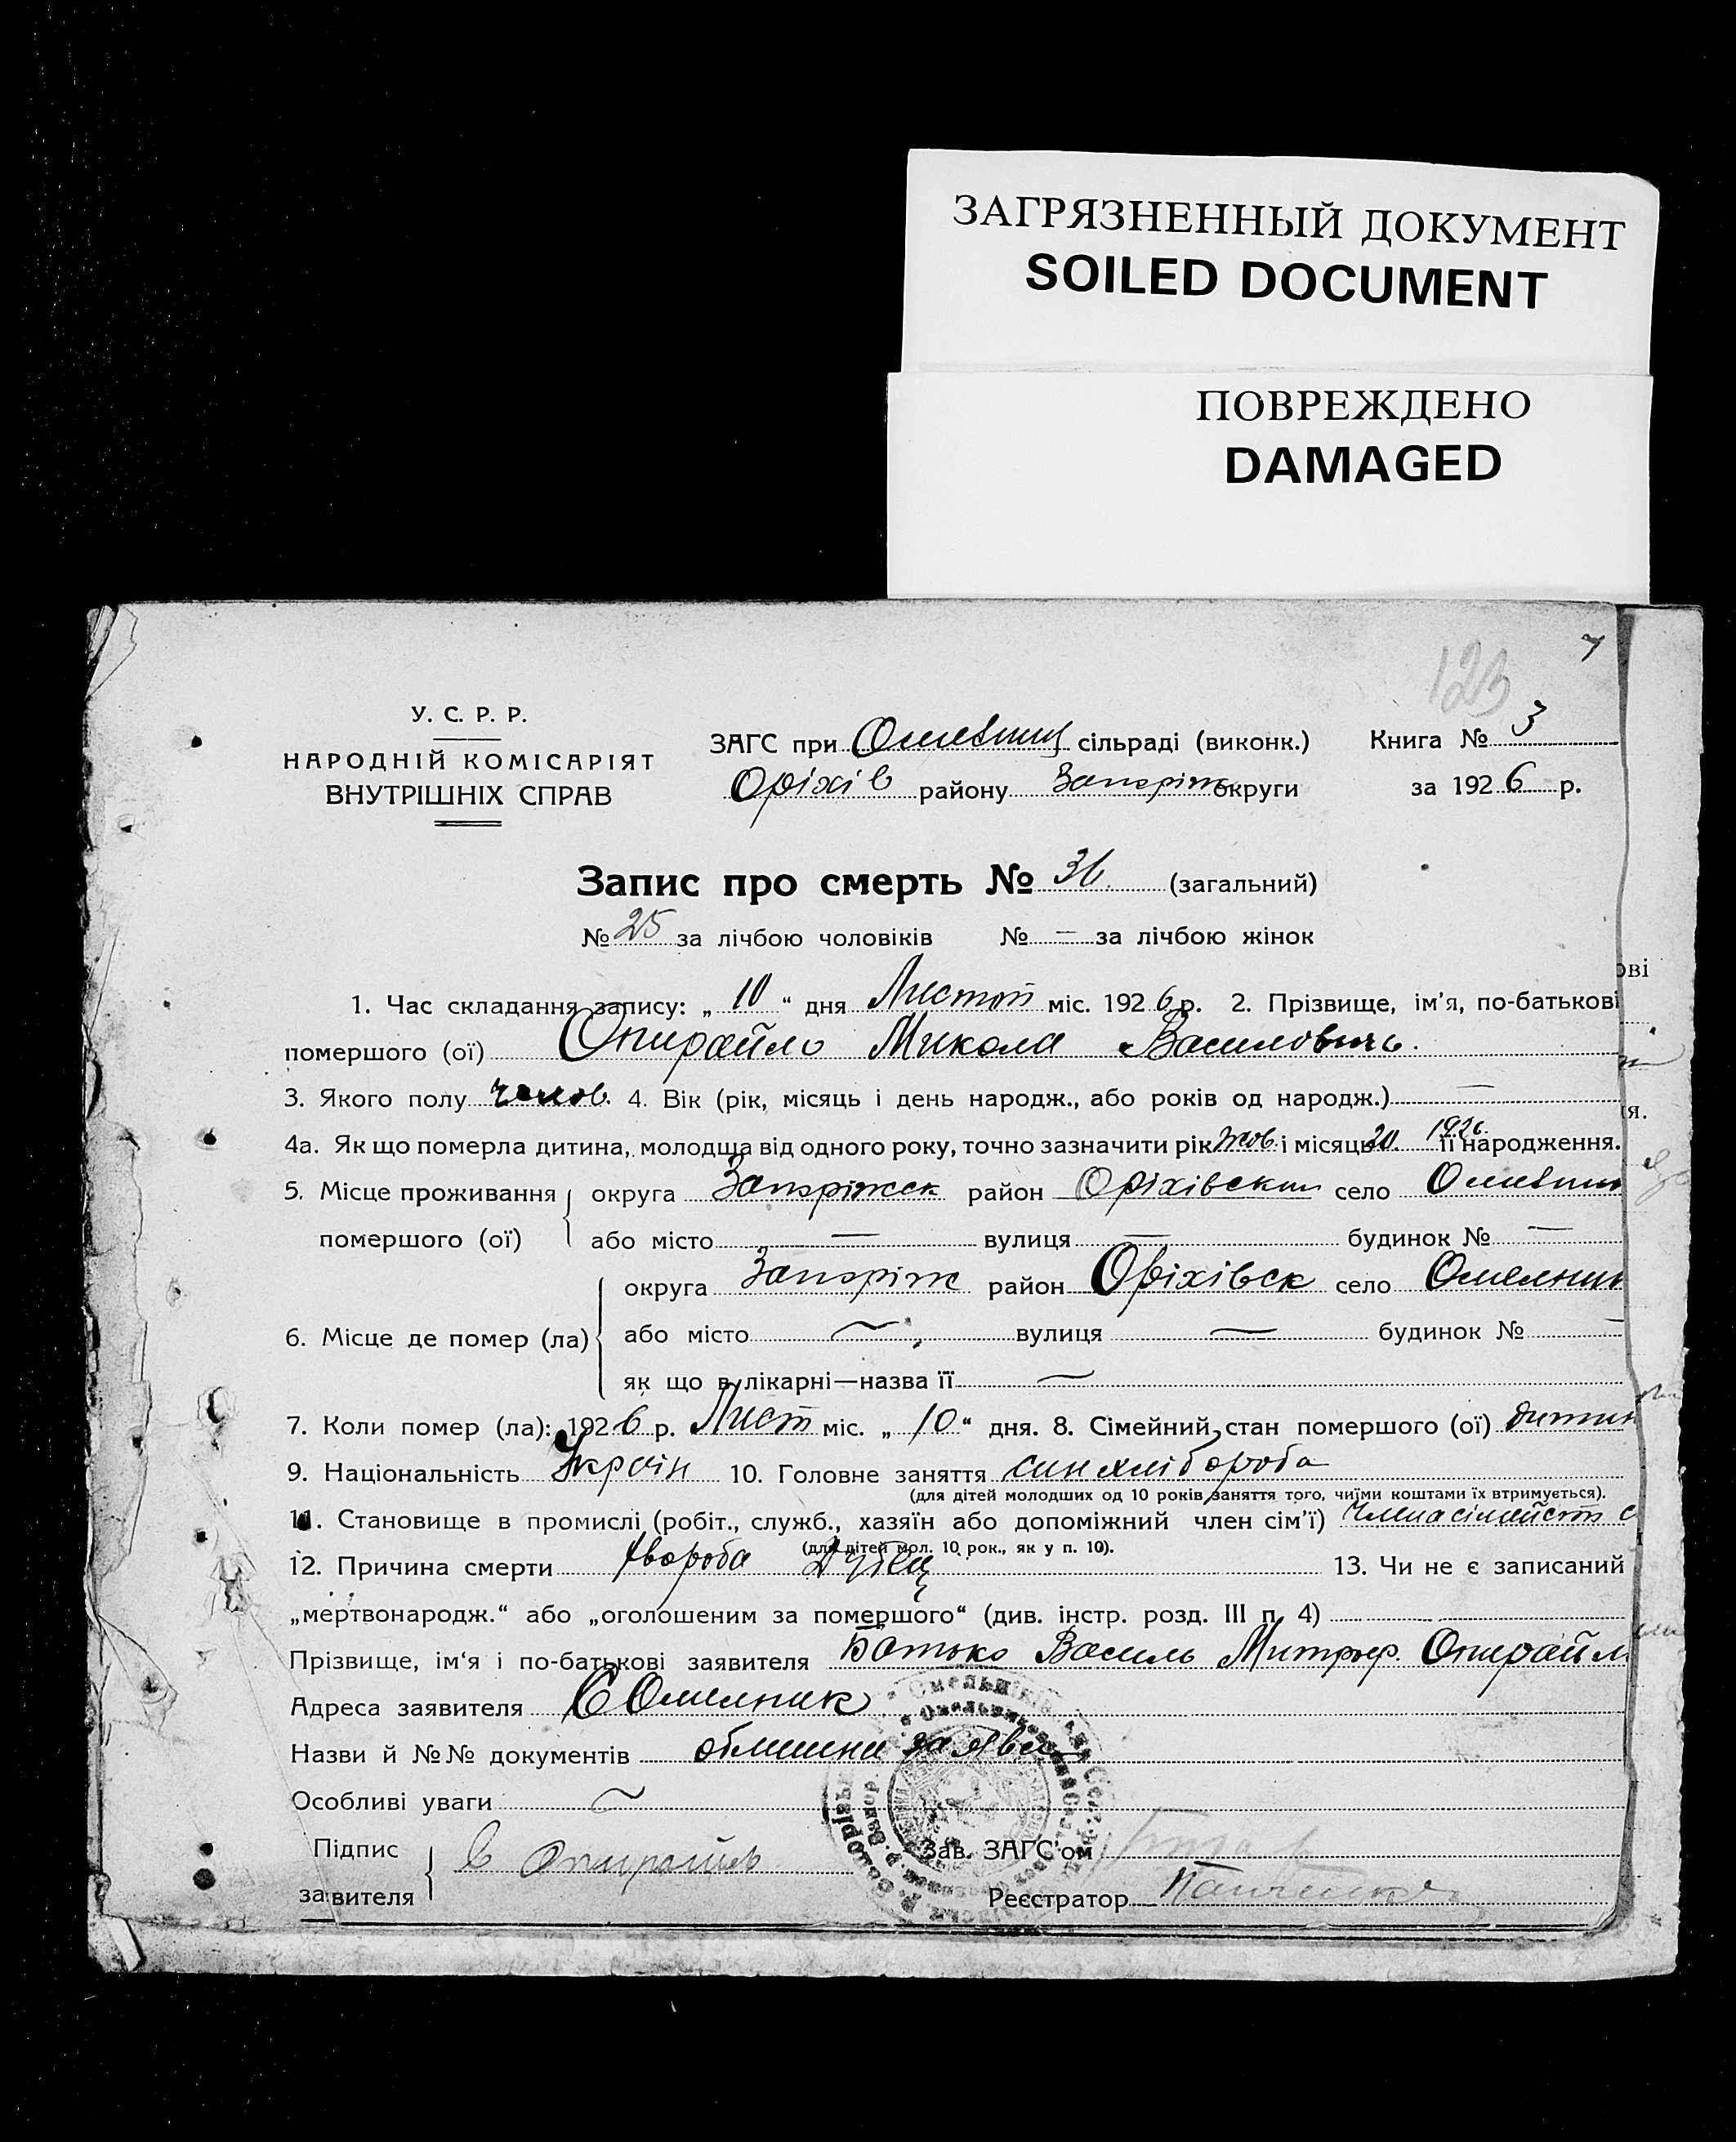 ЗАГРЯЗНЕННЫЙ ДОКУМЕНТ
SOILED DOCUMENT
ПОВРЕЖДЕНО
DAMAGED
123 7
У. С. Р. Р.
НАРОДНІЙ КОМІСАРІЯТ
ВНУТРІШНІХ СПРАВ
ЗАГС при сільраді (виконк.) Книга № 3
Оріхів району Запоріж округи за 1926 р.
Запис про смерть № 36. (загальний)
№ 25 за лічбою чоловіків № — за лічбою жінок
1. Час складання запису: „ 10 “ дня Листоп міс. 1926 р. 2. Прізвище, ім’я, по-батькові
помершого (ої) Опирайло Микола Василовичь.
3. Якого полу челов. 4. Вік (рік, місяць і день народж., або років од народж.) —
4а. Як що померла дитина, молодща від одного року, точно зазначити рік жов. і місяць 20. 1926. її народження.
5. Місце проживання округа Запоріжск район Оріхівский село
помершого (ої) або місто — вулиця — будинок № —
округа Запоріж район Оріхівск село Омелник
6. Місце де помер (ла) або місто — вулиця — будинок № —
як що в лікарні—назва її —
7. Коли помер (ла): 1926 р. Лист міс. „ 10 “ дня. 8. Сімейний стан помершого (ої) дитин
9. Національність Украін 10. Головне заняття син хлібороба
(для дітей молодших од 10 років заняття того, чиїми коштами їх втримується).
11. Становище в промислі (робіт., служб., хазяїн або допоміжний член сім’ї) члена
(для дітей мол. 10 рок., як у п. 10).
12. Причина смерти хвороба 13. Чи не є записаний
„мертвонародж.“ або „оголошеним за помершого“ (див. інстр. розд. III п. 4)
Прізвище, ім‘я і по-батькові заявителя Батько Василь Митроф. Опирайл
Адреса заявителя С Омелник
Назви й №№ документів заява
Особливі уваги —
Підпис В Опирайло Зав. ЗАГС’ом
заявителя Реєстратор